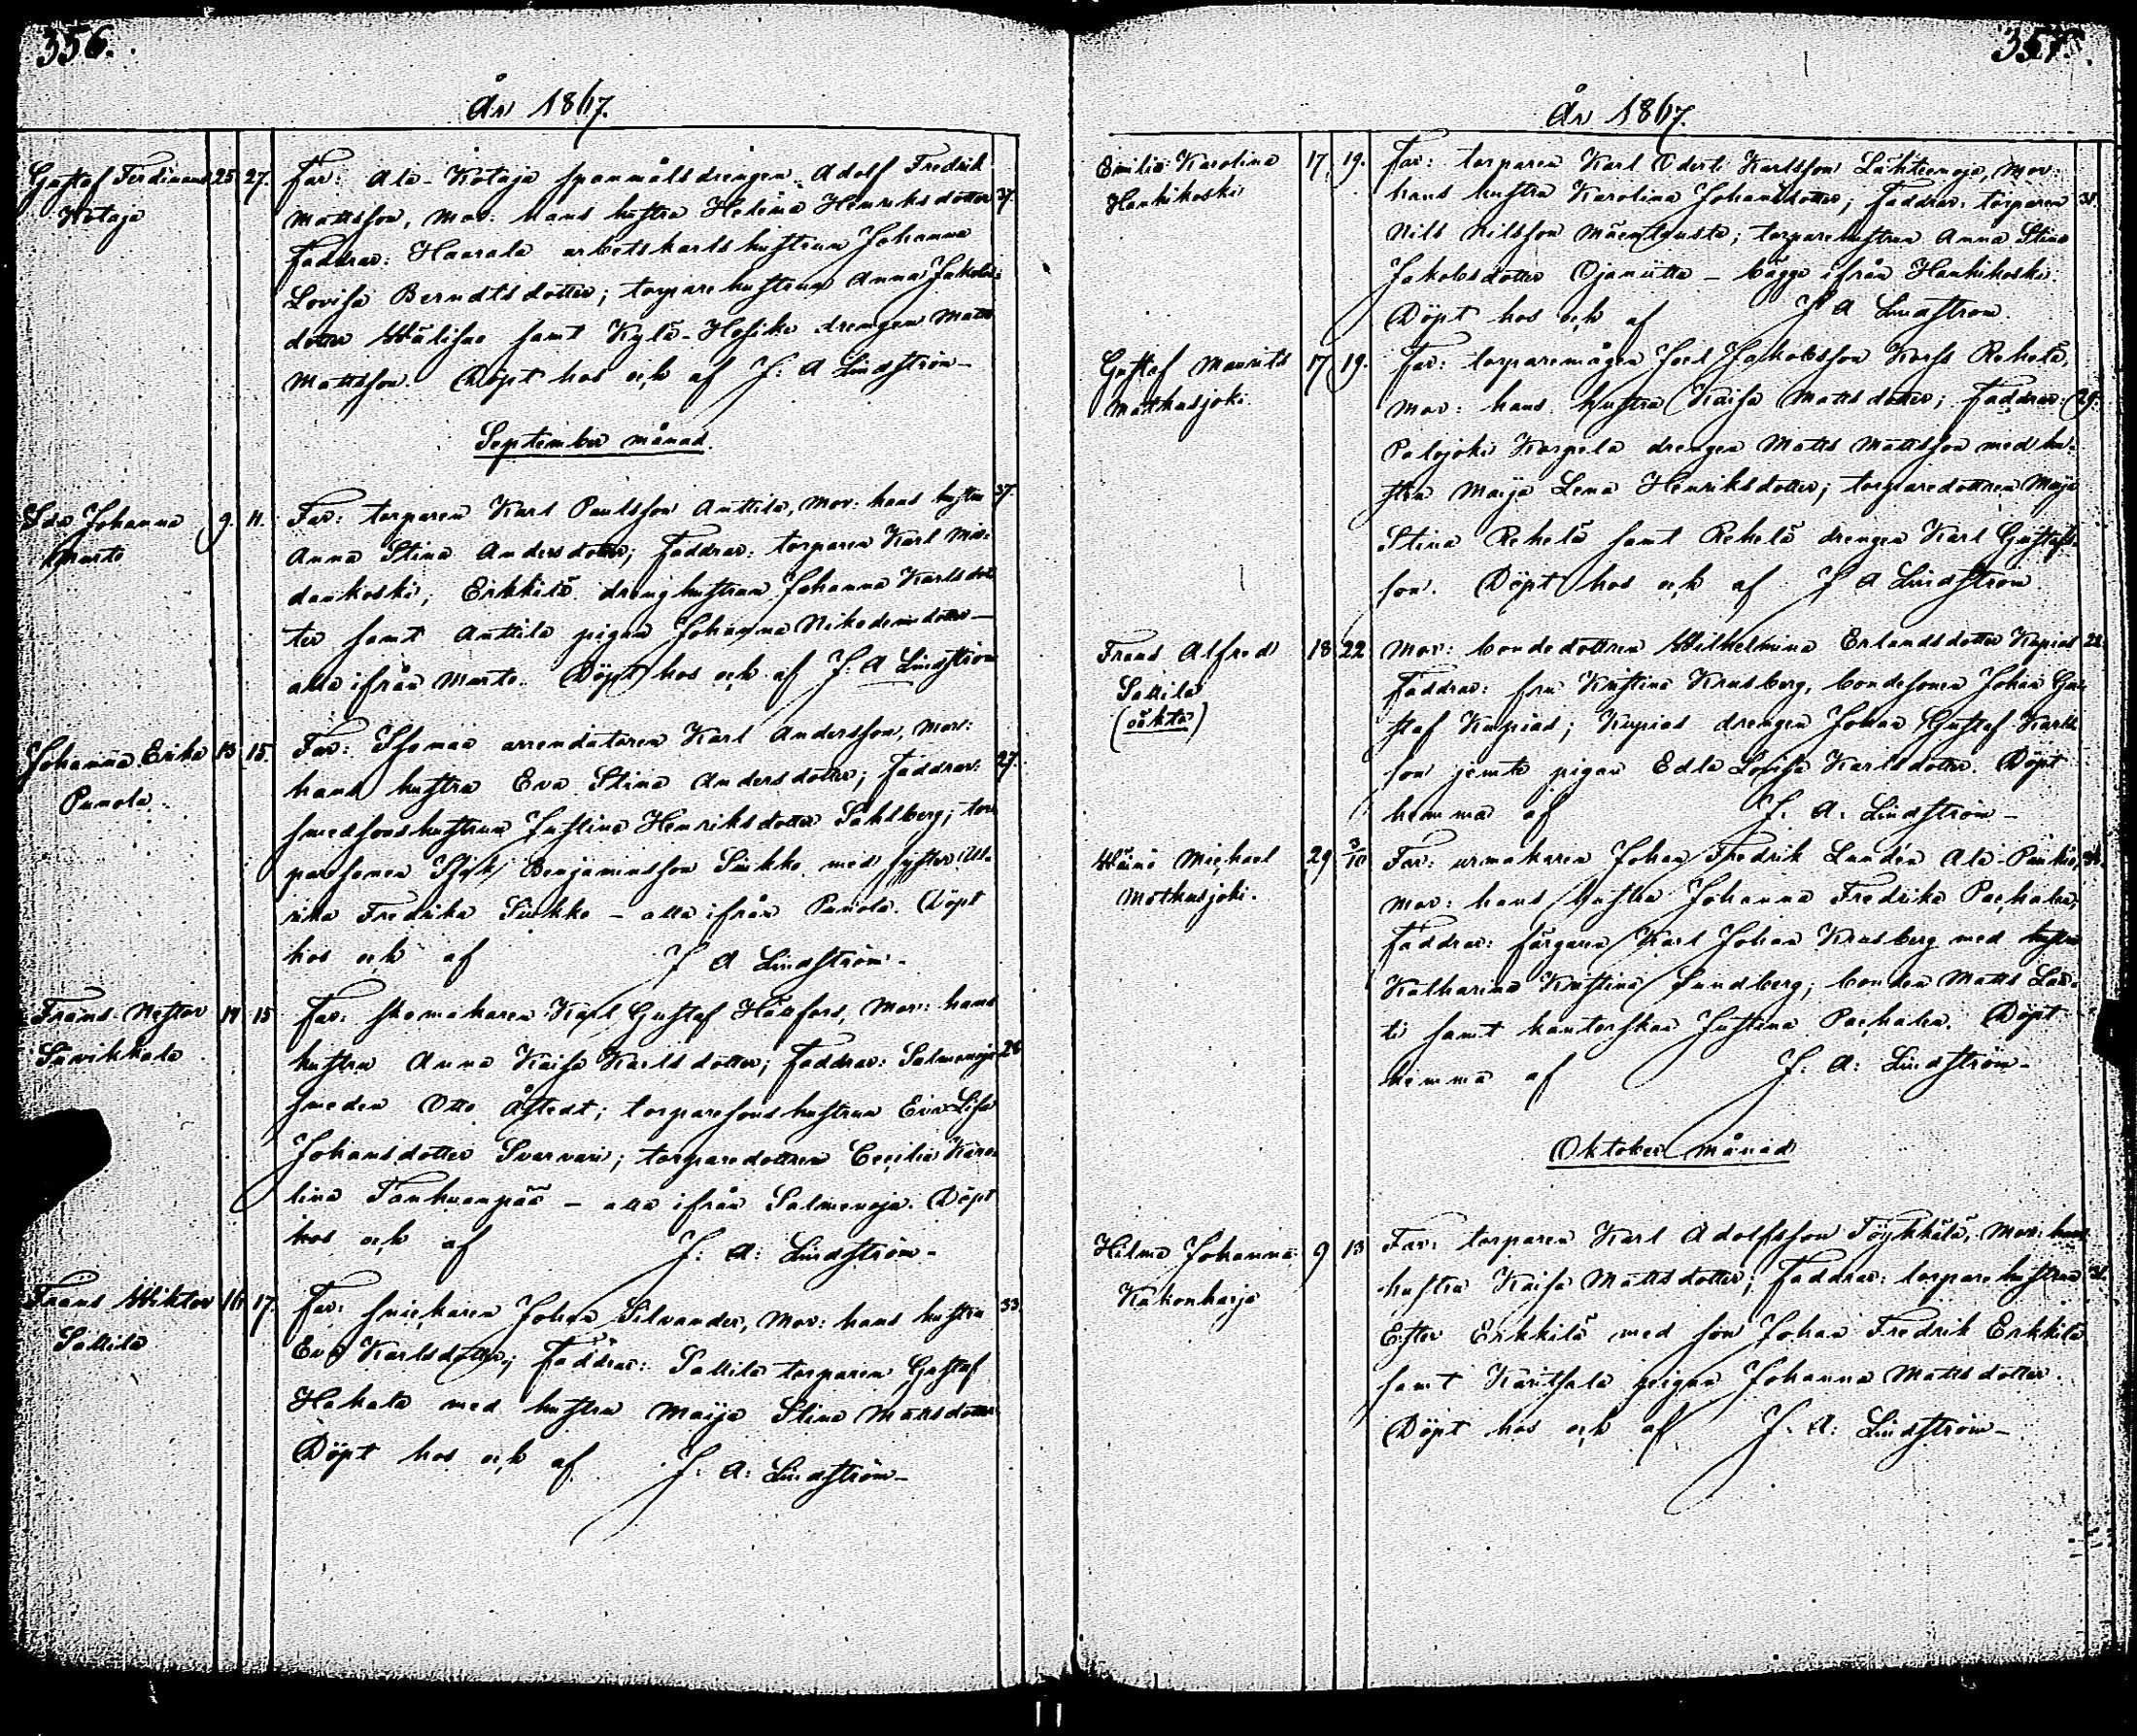 356.
År 1867.
Gustaf Ferdinand 25 27. Far: Ala-Kotaja spanmålsdrengen Adolf Fredrik
Kotaja Mattsson, Mor: hans hustru Helena Henriksdotter 37.
Faddrar: Haarala arbetskarlshustrun Johanna
Lovisa Berndtsdotter; torparehustrun Anna Jakobs-
dotter Wälisuo samt Kylä-Hosike drengen Matts
Mattsson. Döpt hos och af J: A Lindström
September månad.
Ida Johanna 9. 11. Far: torparen Karl Paulsson Anttila, Mor: hans hustru 37.
Martto Anna Stina Andersdotter; Faddrar: torparen Karl
Erkkilä drenghustrun Johanna Karlsdot-
ter samt Anttila pigan Johanna Nikodemidotter
alla ifrån Martto. Döpt hos och af J: A Lindström
Johanna Erika 13 15. Far: arrendatoren Karl Andersson, Mor:
Panola hans hustru Eva Stina Andersdotter; Faddrar: 27.
smedsonshustrun Justina Henriksdotter Sahlberg; tor-
paresonen Isak Benjaminsson Sinkko med syster Ul-
rika Fredrika Sinkko – alla ifrån Panola. Döpt
hos och af J A Lindström
Frans Nestor 14 15 Far: skomakaren Karl Gustaf Hänfors, Mor: hans
Sarikkala hustru Anna Kaisa Karlsdotter; Faddrar: Salmenoja 28
smeden Otto Åstedt; torparesonshustrun Eva Lisa
Johansdotter Svarvari; torparedottren Cecilia Karo-
lina Tanhuanpää – alla ifrån Salmenoja. Döpt
hos och af J: A: Lindström
Frans Wiktor 16 17. Far: snickaren Johan Silvander, Mor: hans hustru 33.
Sallila Eva Karlsdotter; Faddrar: Sallila torparen Gustaf
Hakala med hustru Maija Stina Mattsdotter
Döpt hos och af J: A: Lindström
357.
År 1867.
Emilia Karolina 17 19. Far: torparen Karl Oderk Karlsson Lähteenoja, Mor:
Hankikoski hans hustru Karolina Johansdotter; Faddrar: torparen 31.
Nils Nilsson torparehustrun Anna Stina
Jakobsdotter Ojaniitta – bägge ifrån Hankikoski.
Döpt hos och af J A Lindström.
Gustaf Maurits 17 19. Far: torparemågen Joel Jakobsson Korss Rehelä,
Matkusjoki Mor: hans hustru Kaisa Mattsdotter; Faddrar: 29.
Palojoki Korpela drengen Matts Mattsson med hu-
stru Maija Lena Henriksdotter; torparedottren Maija
Stina Rehelä samt Rehelä drengen Karl Gustafs-
son. Döpt hos och af J A Lindström
Frans Alfred 18 22 Mor: bondedottren Wilhelmina Erlandsdotter Kupias 22.
Sallila Faddrar: fru Kristina Krusberg, bondesonen Johan Gu-
(oäkta) staf Kupias; Kupias drengen Johan Gustaf Karls-
son jemte pigan Edla Lovisa Karlsdotter. Döpt
hemma af J. A. Lindström
Wäinö Michael 29 3/10 Far: urmakaren Johan Fredrik Lundén Ala-
Matkusjoki. Mor: hans hustru Johanna Fredrika Pachalen,
Faddrar: färgaren Karl Johan Krusberg med hustru
Katharina Kristina Sundberg; bonden Matts
samt kantorskan Justina Pachalen. Döpt
hemma af J: A: Lindström
Oktober månad
Hilma Johanna 9 13 Far: torparen Karl Adolfsson Töykkälä, Mor: hans
Kukonharja hustru Kaisa Mattsdotter; Faddrar: torparehustrun 31.
Ester Erkkilä med son Johan Fredrik Erkkilä
samt pigan Johanna Mattsdotter.
Döpt hos och af J. A: Lindström